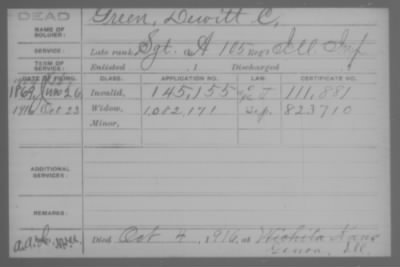 DEAD
NAME OF SOLDIER: Green, Dewitt C.
SERVICE: Late rank, Sgt. Co. A 105 Reg't Ill Inf
TERM OF SERVICE: Enlisted , 1 Discharged , 1
DATE OF FILING. CLASS. APPLICATION NO. LAW. CERTIFICATE NO.
1869, Invalid, 145,155 111,881
1916 Oct 23 Widow, 1,082,171 Sep. 823710
Minor,
ADDITIONAL SERVICES:
REMARKS:
Died Oct 4, 1916, at Wichita Kans
Ill.